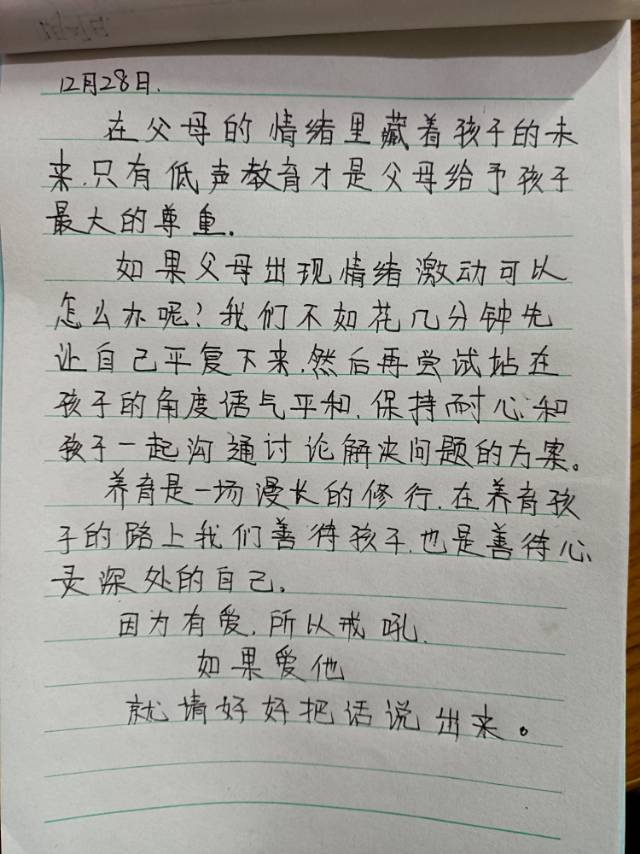 12月28日.
在父母的情绪里藏着孩子的未
来.只有低声教育才是父母给予孩子
最大的尊重.
如果父母出现情绪激动可以
怎么办呢?我们不如花几分钟先
让自己平复下来.然后再尝试站在
孩子的角度语气平和.保持耐心和
孩子一起沟通讨论解决问题的方案。
养育是一场漫长的修行.在养育孩
子的路上我们善待孩子.也是善待心
灵深处的自己.
因为有爱.所以戒吼.
如果爱他
就请好好把话说出来。